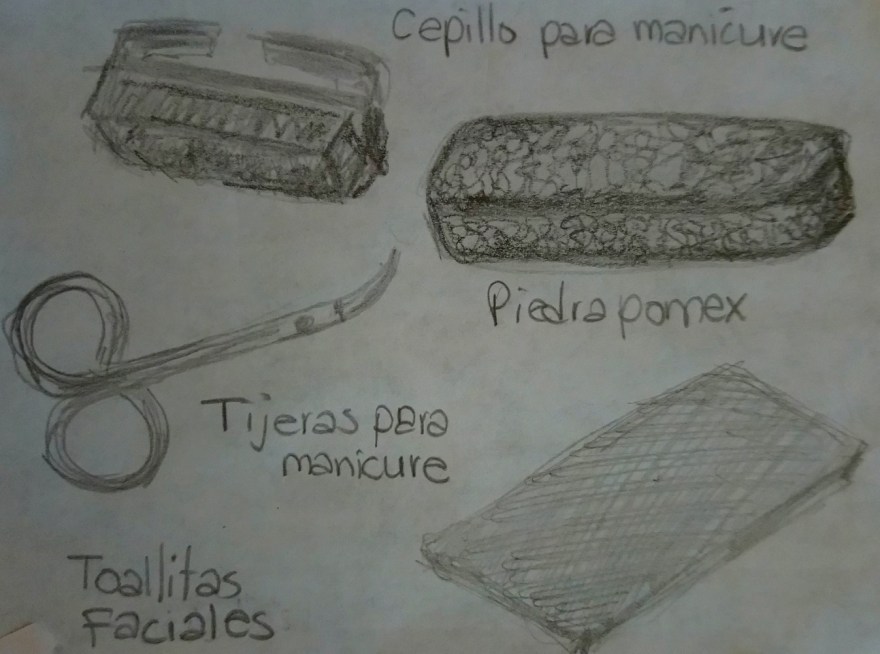 Cepillo para manicure
Piedra pomex
Tijeras para
manicure
Toallitas
Faciales